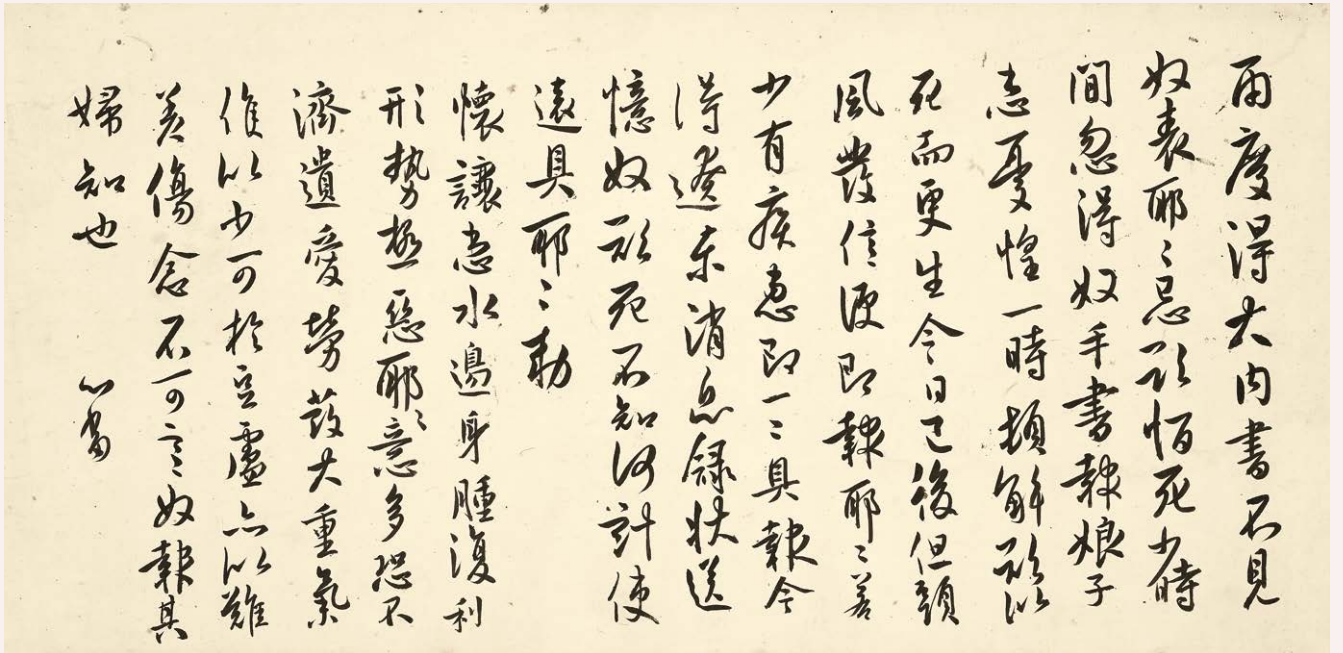 兩度得大內書不見
奴表耶〻忌欲恒死少時
間忽得奴手書報娘子
患憂惶一時頓解欲似
死而更生今日已後但頭
風發信便即報耶〻若
少有疾患即一〻具報今
得遼東消息錄狀送
憶奴欲死不知何計使
還具耶〻敕
懷讓患水邊身腫復利
形勢極惡耶〻意多恐不
濟遺愛勞發大重氣
以少可於豆盧亦以難
差傷念不可言奴報其
婦知也